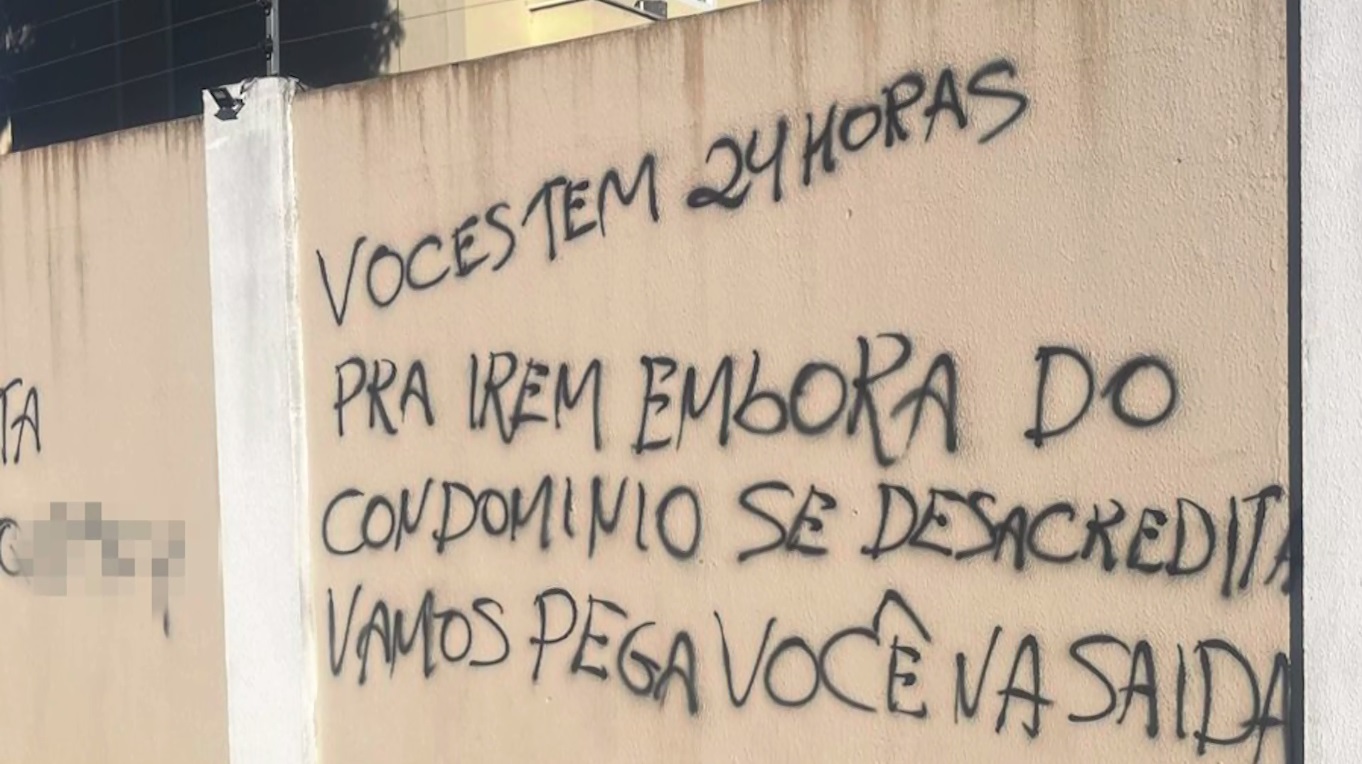 TA
VOCES TEM 24 HORAS
PRA IREM EMbORA DO
CONDOMINIO SE DESACREDITA
VAMOS PEGA VOCÊ NA SAIDA